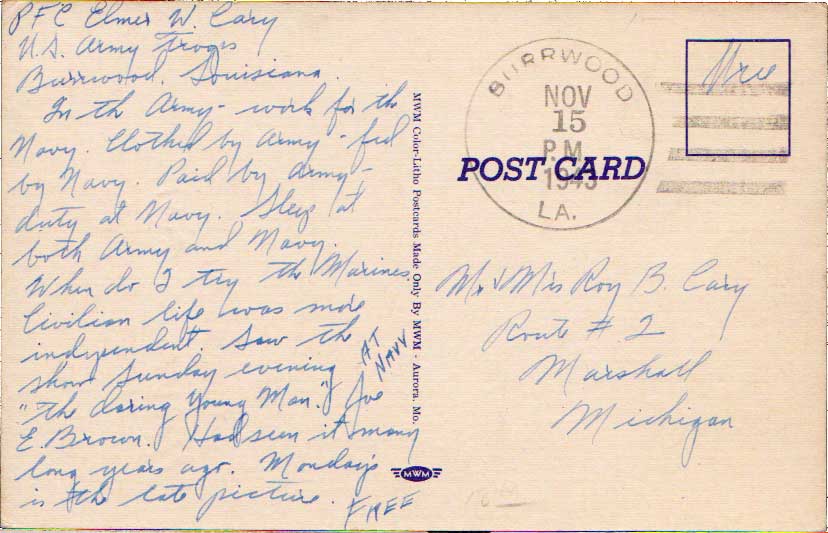 PFC Elmer W. Cary
U.S. Army Troops
Burrwood, Louisiana.
In the Army - work for the
Navy. Clothed by Army - fed
by Navy. Paid by Army -
duty at Navy. Sleep at
both Army and Navy.
When do I try the Marines.
Civilian life was more
independent. Saw the
show Sunday evening AT NAVY
"The daring Young Man." Joe
E. Brown. Had seen it many
long years ago. Monday's
is the late picture. FREE
MWM Color-Litho Postcards Made Only By MWM - Aurora, Mo.
MWM
BURRWOOD
NOV
15
P.M.
1943
LA.
Free
POST CARD
Mr & Mrs Roy B. Cary
Route # 2
Marshall
Michigan